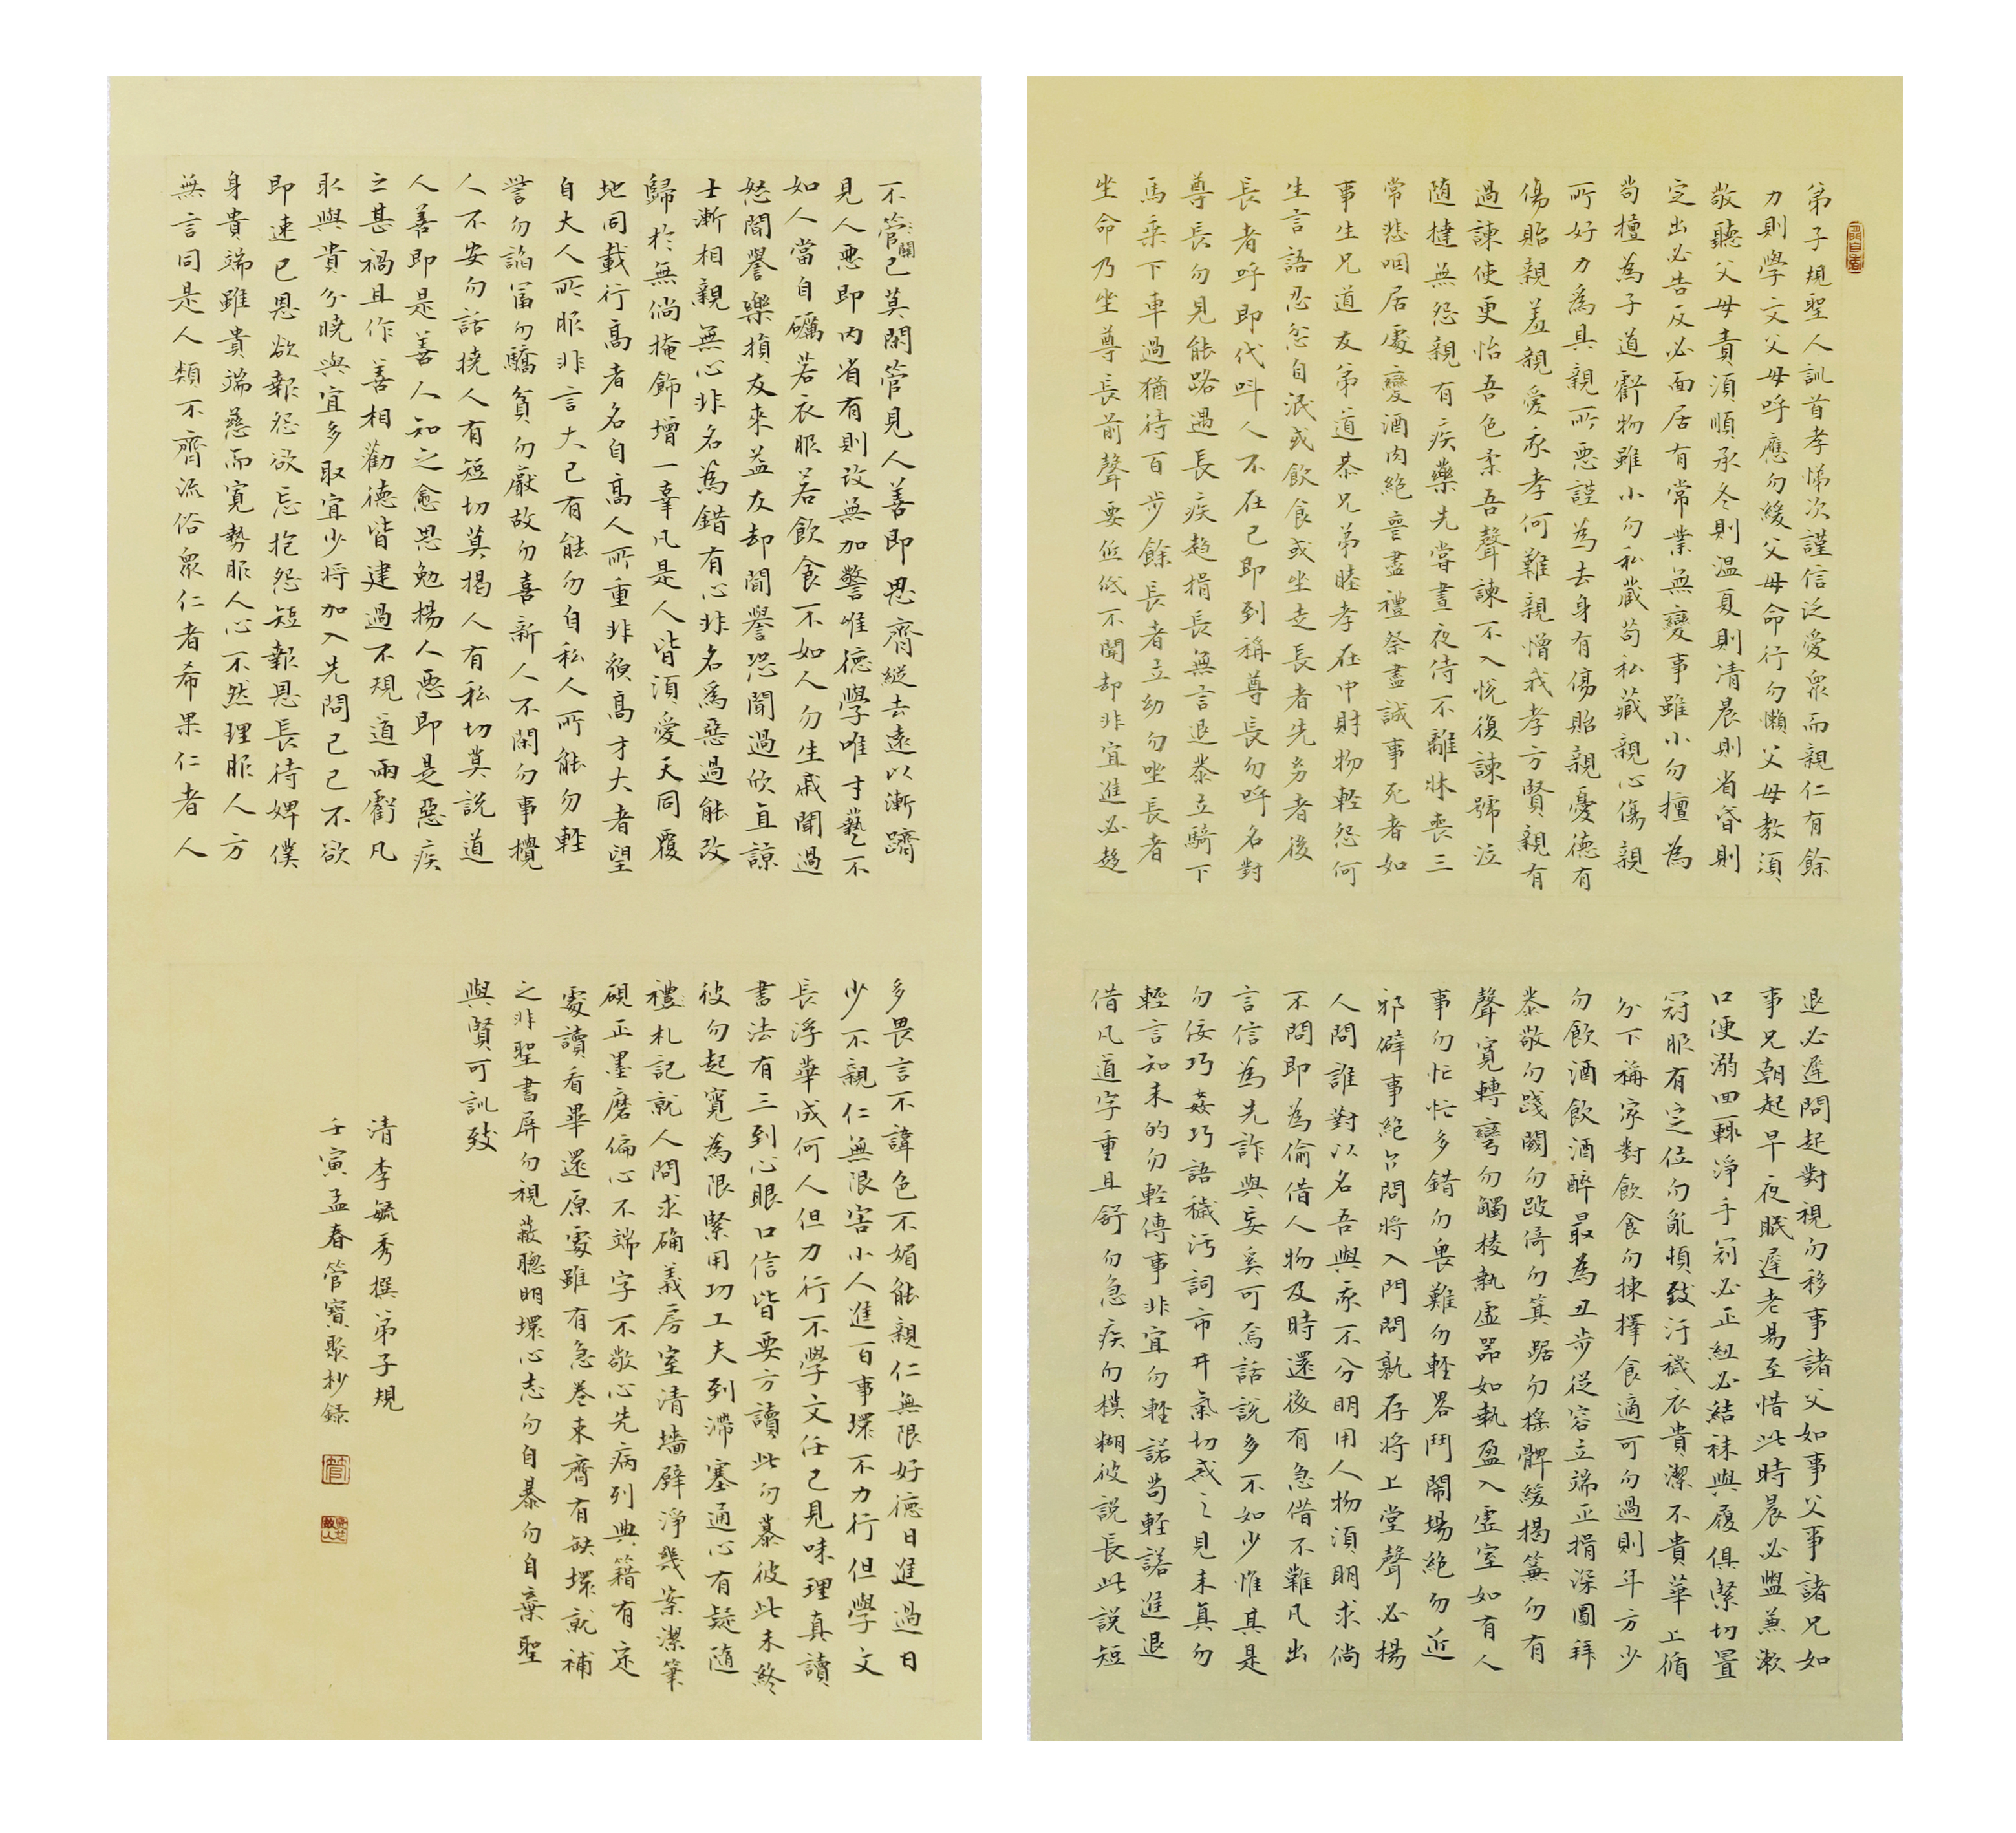 弟子規聖人訓首孝悌次謹信泛愛衆而親仁有餘
力則學文父母呼應勿緩父母命行勿懶父母教須
敬聽父母責須順承冬則溫夏則清晨則省昏則
定出必告反必面居有常業無變事雖小勿擅為
苟擅為子道虧物雖小勿私藏苟私藏親心傷親
所好力為具親所惡謹為去身有傷貽親憂德有
傷貽親羞親愛我孝何難親憎我孝方賢親有
過諫使更怡吾色柔吾聲諫不入悅復諫號泣
隨撻無怨親有疾藥先嘗晝夜侍不離牀喪三
常悲咽居處變酒肉絕喪盡禮祭盡誠事死者如
事生兄道友弟道恭兄弟睦孝在中財物輕怨何
生言語忍忿自泯或飲食或坐走長者先幼者後
長者呼即代叫人不在己即到稱尊長勿呼名對
尊長勿見能路遇長疾趨揖長無言退恭立騎下
馬乘下車過猶待百步餘長者立幼勿坐長者
坐命乃坐尊長前聲要低低不聞却非宜進必趨
退必遲問起對視勿移事諸父如事父事諸兄如
事兄朝起早夜眠遲老易至惜此時晨必盥兼漱
口便溺回輒淨手冠必正紐必結襪與履俱緊切置
冠服有定位勿亂頓致汙穢衣貴潔不貴華上循
分下稱家對飲食勿揀擇食適可勿過則年方少
勿飲酒飲酒醉最為丑步從容立端正揖深圓拜
恭敬勿踐閾勿跛倚勿箕踞勿搖髀緩揭簾勿有
聲寬轉彎勿觸棱執虛器如執盈入虛室如有人
事勿忙忙多錯勿畏難勿輕畧鬥鬧場絕勿近
邪僻事絕勿問將入門問孰存將上堂聲必揚
人問誰對以名吾與我不分明用人物須明求倘
不問即為偷借人物及時還後有急借不難凡出
言信為先詐與妄奚可焉話說多不如少惟其是
勿佞巧姦巧語穢污詞市井氣切戒之見未真勿
輕言知未的勿輕傳事非宜勿輕諾苟輕諾進退
借凡道字重且舒勿急疾勿模糊彼說長此說短
不管關己莫閑管見人善即思齊縱去遠以漸躋
見人惡即內省有則改無加警惟德學唯才藝不
如人當自礪若衣服若飲食不如人勿生戚聞過
怒聞譽樂損友來益友却聞譽恐聞過欣直諒
士漸相親無心非名為錯有心非名為惡過能改
歸於無倘掩飾增一辜凡是人皆須愛天同覆
地同載行高者名自高人所重非貌高才大者望
自大人所服非言大己有能勿自私人所能勿輕
訾勿諂富勿驕貧勿厭故勿喜新人不閑勿事攪
人不安勿話擾人有短切莫揭人有私切莫說道
人善即是善人知之愈思勉揚人惡即是惡疾
之甚禍且作善相勸德皆建過不規道兩虧凡
取與貴分曉與宜多取宜少將加入先問己己不欲
即速已恩欲報怨欲忘抱怨短報恩長待婢僕
身貴端雖貴端慈而寬勢服人心不然理服人方
無言同是人類不齊流俗衆仁者希果仁者人
多畏言不諱色不媚能親仁無限好德日進過日
少不親仁無限害小人進百事壞不力行但學文
長浮華成何人但力行不學文任己見味理真讀
書法有三到心眼口信皆要方讀此勿慕彼此未終
彼勿起寬為限緊用功工夫到滯塞通心有疑隨
禮札記就人問求确義房室清墻壁淨幾案潔筆
硯正墨磨偏心不端字不敬心先病列典籍有定
處讀看畢還原處雖有急卷束齊有缺壞就補
之非聖書屏勿視蔽聰明壞心志勿自暴勿自棄聖
與賢可訓致
清李毓秀撰弟子規
壬寅孟春管寶聚抄錄
管